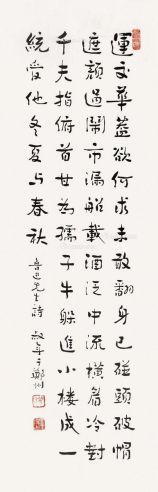 運交華蓋欲何求未敢翻身已碰頭破帽
遮顔過鬧市漏船載酒泛中流橫眉冷對
千夫指俯首甘為孺子牛躲進小樓成一
統管他冬夏与春秋
魯迅先生詩
叔年于鄭州